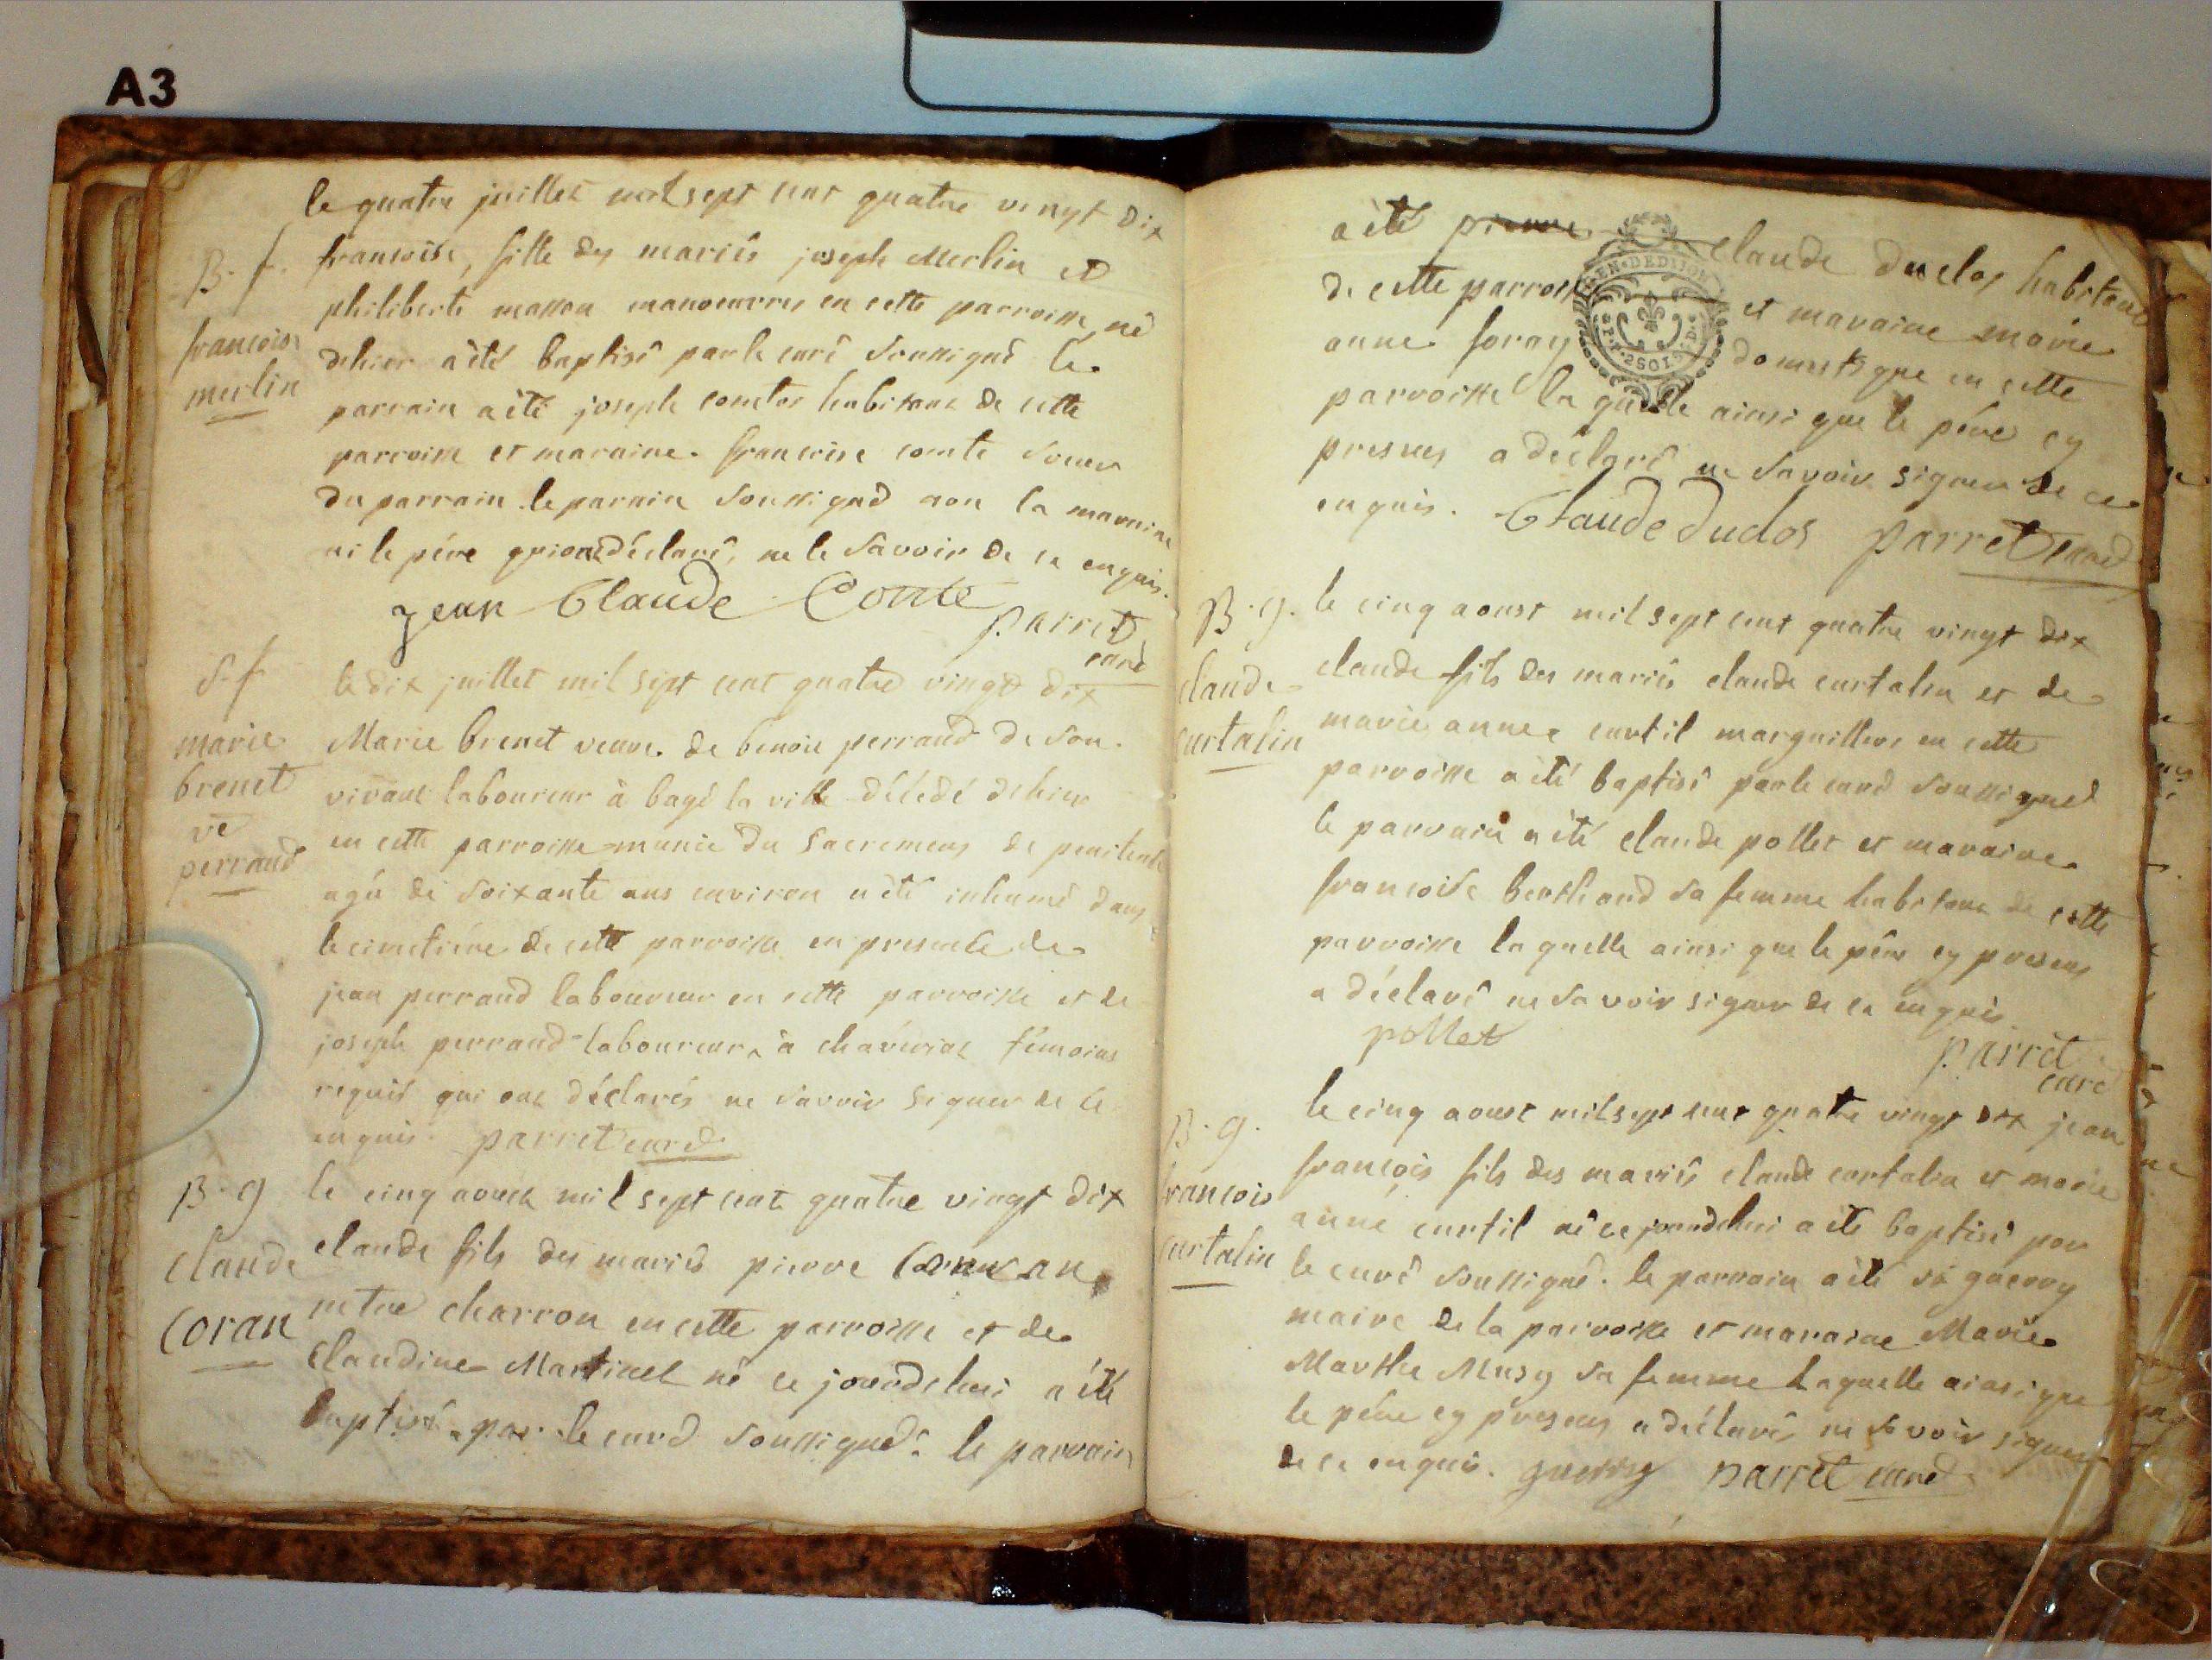 A3
le quatre juillet mil sept cent quatre vingt dix
B. f.
francoise
merlin
francoise, fille des mariés joseph Merlin et
philiberte masson manoeuvres en cette parroisse, né
dehier a été baptisé par le curé soussigné le
parrain a été joseph comte habitant de cette
parroisse et maraine francoise comte soeur
du parrain le parain soussigné non la maraine
ni le pére qui ont déclaré, ne le savoir de ce enquis.
jean Claude Comte
parret
curé
S. f
marie
brenet
ve
perraud
le dix juillet mil sept cent quatre vingt dix
Marie brenet veuve de benoit perraud de son
vivant laboureur à bagé la ville décédé dehier
en cette parroisse munie du sacremens de penitence
agée de soixante ans environ a été inhumé dans
le cimetiére de cette parroisse en presence de
jean perraud laboureur en cette parroisse et de
joseph perraud laboureur à chaveriat temoins
requis qui ont déclarés ne savoir signer de ce
enquis. parret curé
B. g
Claude
Coran
le cinq aoust mil sept cent quatre vingt dix
claude fils des mariés pierre Coran
metre charron en cette parroisse et de
Claudine Martinet né ce jourdehui a été
baptisé par le curé soussigné le parrain
a été claude duclos habitant
de cette parroisse et maraine marie
anne foray domestique en cette
parroisse la quelle ainsi que le pére cy
presens a déclaré ne savoir signer de ce
enquis. Claude duclos parret curé
GEN. DE DIJON
2 SOLS
B. g.
claude
curtalin
le cinq aoust mil sept cent quatre vingt dix
claude fils des mariés claude curtalin et de
marie anne curtil marguilliers en cette
parroisse a été baptisé par le curé soussigné
le parrain a été claude pollet et maraine
francoise berthoud sa femme habitans de cette
parroisse la quelle ainsi que le pére cy presens
a déclaré ne savoir signer de ce enquis
pollet
parret
curé
B. g.
francois
curtalin
le cinq aoust mil sept cent quatre vingt dix jean
francois fils des mariés claude curtalin et marie
anne curtil né ce jourdehui a été baptisé par
le curé soussigné. le parrain a été sr guerry
maire de la parroisse et maraine Marie
Marthe Musy sa femme laquelle ainsi que
le pére cy presens a déclaré ne savoir signer
de ce enquis. guerry parret curé